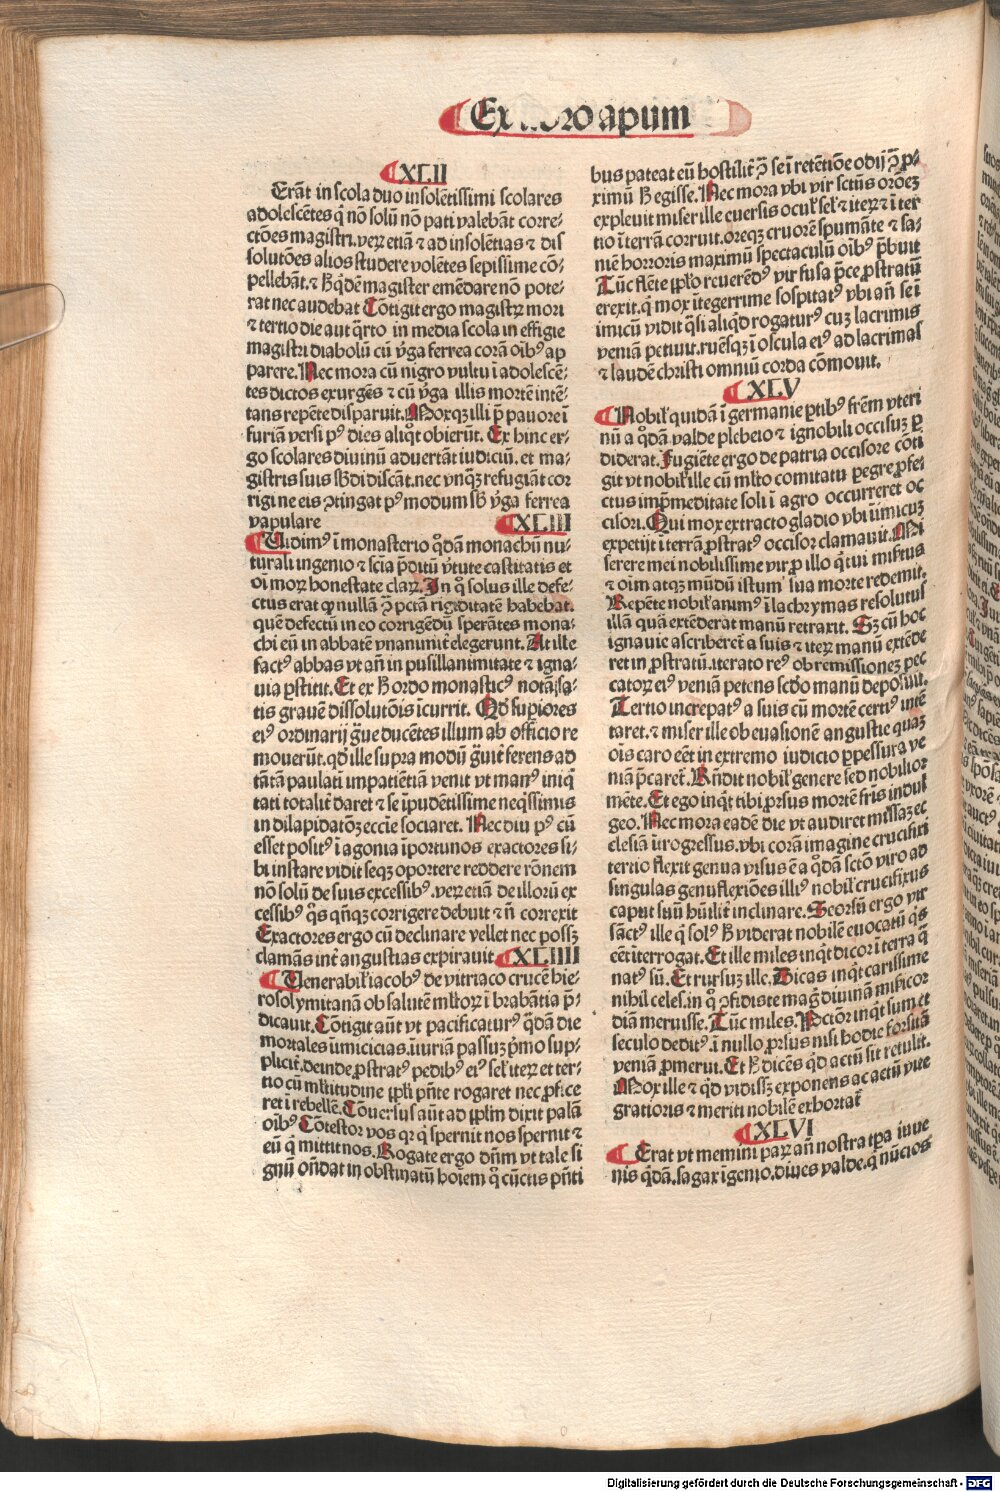 Ex libro apum
XLII
Erāt in scola duo insolētissimi scolares
adolescētes q̄ nō solū nō pati valebāt corre⸗
ctōes magistri. veꝝ etiā ⁊ ad insolētias ⁊ dis
solutōes alios studere volētes sepissime cō⸗
pellebāt. ⁊ ꝧ q̇dē magister emēdare nō pote⸗
rat nec audebat Cōtigit ergo magistꝝ mori
⁊ tertio die aut q̇rto in media scola in effigie
magistri diabolū cū v̄ga ferrea corā oībꝰ ap
parere. Nec mora cū nigro vultu ī adolescē⸗
tes dictos exurgēs ⁊ cū v̄ga illis mortē intē⸗
tans repēte disparuit. Moxqꝫ illi p̄ pauore ī
furiā versi pꝰ dies aliq̊t obierūt. Ex hinc er⸗
go scolares diuinū aduertāt iudiciū. et ma⸗
gistris suis sb̄di discāt. nec vnqꝫ refugiāt cor
rigi ne eis ꝯtingat pꝰ modum sb̄ v̄ga ferrea
vapulare
XLIII
Uidimꝰ ī monasterio q̊dā monachū na⸗
turali ingenio ⁊ scīa p̄ditū v̄tute castitatis et
oī moꝝ honestate claꝝ. In q̊ solus ille defe⸗
ctus erat ꝙ nullā ꝯ̄ pctā̄ rigiditatē habebat.
quē defectū in eo corrigēdū sperātes mona⸗
chi eū in abbatē vnanimit̄ elegerunt. At ille
factꝰ abbas vt añ in pusillanimitate ⁊ igna⸗
uia ꝑstitit. Et ex ꝧ ordo monasticꝰ notā sa⸗
tis grauē dissolutōis īcurrit. Qd̄ supiores
eiꝰ ordinarij g̊ue ducētes illum ab officio re
mouerūt. qd̄ ille supra modū g̊uit̄ ferens ad
tātā paulatī impatiētiā venit vt manꝰ iniq̇
tati totalit̄ daret ⁊ se īpudētissime neq̇ssimis
in dilapidatōꝫ eccīe sociaret. Nec diu pꝰ cū
esset positꝰ ī agonia īportunos exactores si⸗
bi instare vidit seqꝫ oportere reddere rōnem
nō solū de suis excessibꝰ. veꝝ etiā de illorū ex
cessibꝰ q̇s q̇nqꝫ corrigere debuit ⁊ ñ correxit
Exactores ergo cū declinare vellet nec possꝫ
clamās int̄ angustias expirauit
XLIIII
Uenerabil̄ iacobꝰ de vitriaco crucē hie⸗
rosolymitanā ob salutē ml̄toꝝ ī brabātia p̄⸗
dicauit. Cōtigit aūt vt pacificaturꝰ q̊sdā die
mortales īimicicias. iiuriā passuꝫ p̄mo sup⸗
plicit̄. deinde ꝓstratꝰ pedibꝰ eiꝰ sel̄ iteꝝ et ter⸗
tio cū ml̄titudine ipl̄i pn̄te rogaret nec ꝓfice
ret ī rebellē. Cōuersus aūt ad ipl̄m dixit palā
oībꝰ Cōtestor vos qr q̇ spernit nos spernit ⁊
eū q̇ mittit nos. Rogate ergo dn̄m vt tale si
gnū on̄dat in obstinatū hoiem q̊ cūctis pn̄ti
bus pateat eū hostilit̄ ꝯ̄ se ī retētiōe odij ꝯ̄ ꝓ⸗
ximū ꝧ egisse. Nec mora vbi vir sctūs orōeꝫ
expleuit miser ille euersis ocul̄ sel̄ ⁊ iteꝝ ⁊ ī ter
tio ī terrā corruit. oreqꝫ cruorē spumāte ⁊ sa⸗
niē horroris maximū spectaculū oībꝰ p̄buit
Tūc flēte ipl̄o reuerēdꝰ vir fusa p̄ce ꝓstratū
erexit. q̇ mox ītegerrime sospitatꝰ vbi añ se ī
imicū vidit q̇si aliq̇d rogaturꝰ cuꝫ lacrimis
veniā petiuit. ruēsqꝫ ī oscula eiꝰ ad lacrimas
⁊ laudē christi omniū corda cōmouit.
XLV
Nobil̄ quidā ī germanie ꝑtibꝰ frēm vteri
nū a q̊dā valde plebeio ⁊ ignobili occisuꝫ ꝑ
diderat. Fugiēte ergo de patria occisore cōti
git vt nobil̄ ille cū ml̄to comitatu ꝑegre ꝓfe⸗
ctus imp̄meditate soli ī agro occurreret oc
cisori. Qui mox extracto gladio vbi īimicuꝫ
expetijt ī terrā ꝓstratꝰ occisor clamauit. Mi
serere mei nobilissime vir ꝓ illo q̇ tui misertus
⁊ oīm atqꝫ mūdū istum sua morte redemit.
Repēte nobil̄ animꝰ ī lachrymas resolutus
illā quā extēderat manū retraxit. Sꝫ cū hoc
ignauie ascriberet̄ a suis ⁊ iteꝝ manū extēde
ret in ꝓstratū. iterato reꝰ ob remissioneꝫ pec
catoꝝ eiꝰ veniā petens scd̄o manū deposuit.
Tertio increpatꝰ a suis cū mortē certiꝰ intē
taret. ⁊ miser ille ob euasionē angustie quaꝫ
oīs caro eēt in extremo iudicio ꝑpessura ve
niā p̄caret̄. Rn̄dit nobil̄ genere sed nobilior
mēte. Et ego inq̇t tibi ꝓrsus mortē fris̄ indul
geo. Nec mora eadē die vt audiret missaꝫ ec
clesiā īgressus. vbi corā imagine crucifixi
tertio flexit genua visus ē a q̊dā sctō viro ad
singulas genuflexiōes illiꝰ nobil̄ crucifixus
caput suū hūilit̄ inclinare. Seorsū ergo vir
sāctꝰ ille q̇ solꝰ ꝧ viderat nobilē euocatū q̇s
eēt īterrogat. Et ille miles inq̇t dicor ī terra q̄
natꝰ sū. Et rursuꝫ ille. Dicas inq̇t carissime
nihil celes. in q̊ ꝯfidiste magꝭ diuinā misericor
diā meruisse. Tūc miles. Pctōr inq̇t sum et
seculo deditꝰ. ī nullo ꝓrsus nisi hodie forsitā
veniā ꝓmerui. Et ꝧ dicēs qd̄ actū sit retulit.
Mox ille ⁊ qd̄ vidissꝫ exponens ac actū vite
gratioris ⁊ meriti nobilē exhortat̄
XLVI
Erat vt memini paꝝ añ nostra tꝑa iuue
nis q̊dā. sagax īgenio. diues valde. q̇ nūcios